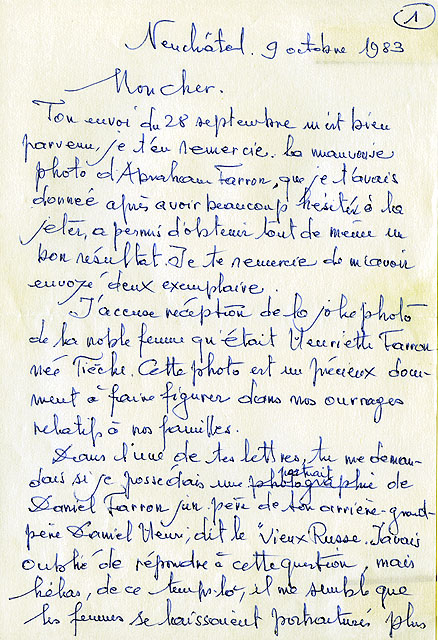 1
Neuchâtel. 9 octobre 1983
Mon cher.
Ton envoi du 28 septembre m'est bien
parvenu, je t'en remercie. La mauvaise
photo d'Abraham Farron, que je t'avais
donneé après avoir beaucoup hésité à la
jeter, a permis d'obtenir tout de même un
bon résultat. Je te remercie de m'avoir
envoyé deux exemplaire.
J'accuse réception de la jolie photo
de la noble femme qu'était Henriette Farron
née Tièche. Cette photo est un précieux docu-
ment à faire figurer dans nos ouvrages
relatifs à nos familles.
Dans l'une de tes lettres, tu me deman-
portrait
dais si je possédais une photographie de
Daniel Farron, père de ton arrière-grand-
père Daniel Henri, dit le "Vieux Russe. J'avais
oublié de répondre à cette question, mais
hélas, de ce temps-là, il me semble que
les femmes se laissaient portraiturés plus